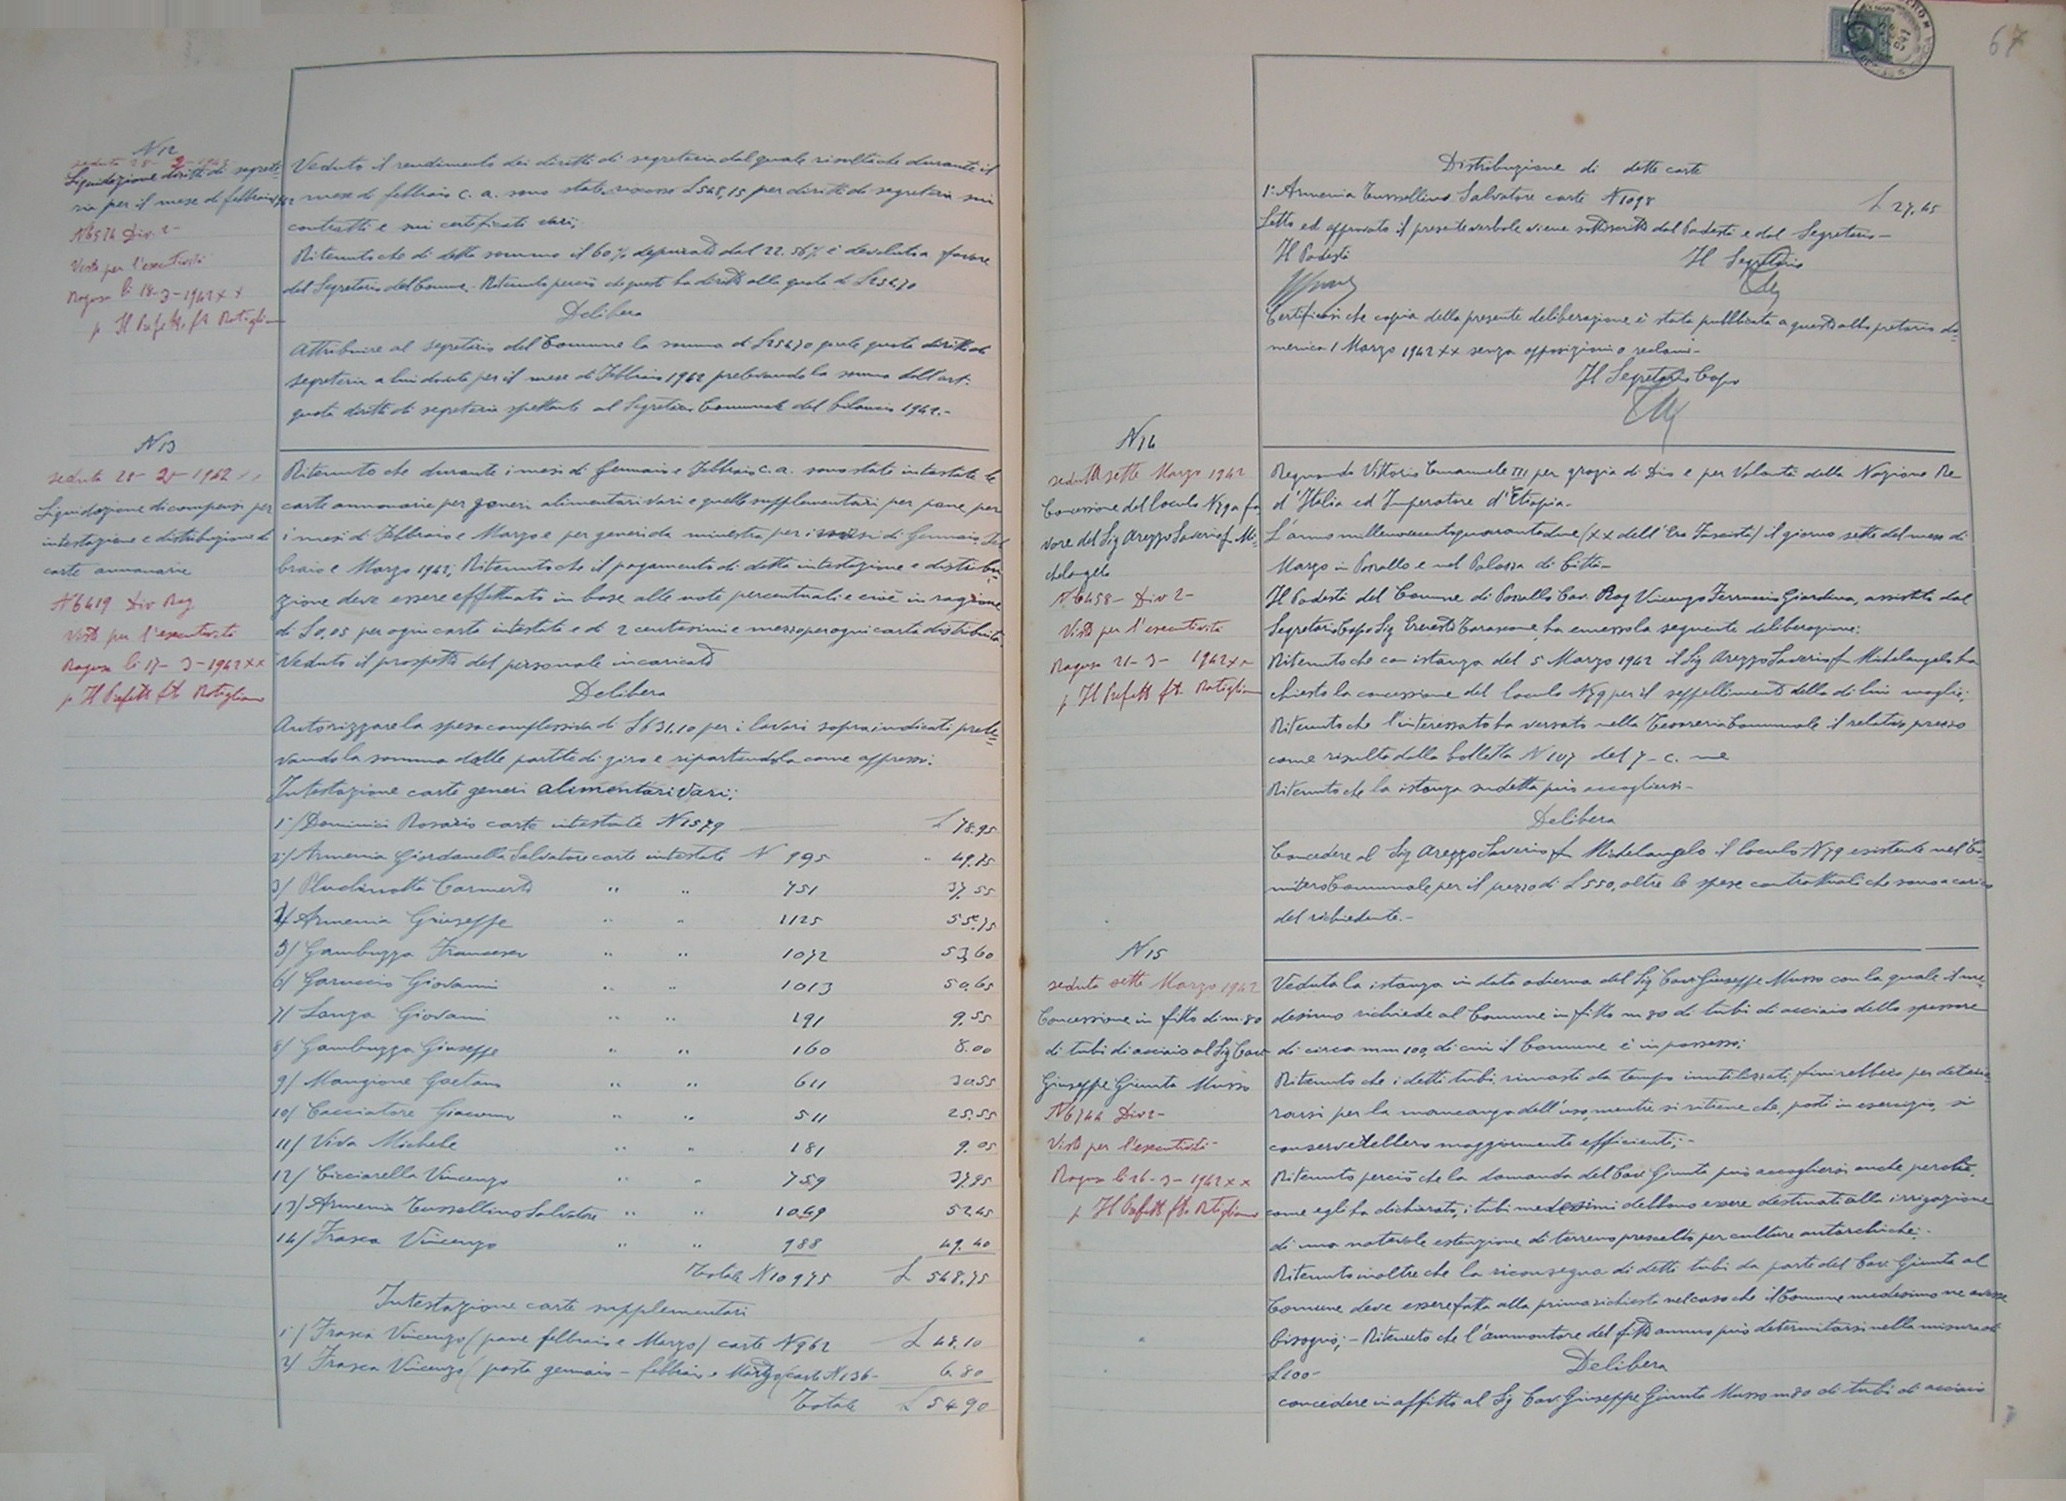 N 12
seduta 28- 2-1942
Liquidazione diritti di segrete-
ria per il mese di febbraio 942
N 6576 Div. 2-
Visto per l'esecutività
Ragusa li 18-3-1942 XX
p Il Prefetto ft Rotigliano
Veduto il rendimento dei diritti di segreteria dal quale risulta che durante il
mese di febbraio c. a. sono state riscosse £ 548,15 per diritti di segreteria sui
contratti e sui certificati vari;
Ritenuto che di detta somma il 60% depurato dal 22.56% è devoluto a favore
del Segretario del Comune. Ritenuto perciò che questi ha diritto alla quota di £ 254,70
Delibera
Attribuire al segretario del Comune la somma di £ 254,70 quale quota diritti di
segreteria a lui dovuta per il mese di Febbraio 1942 prelevando la somma dall'art.
quota diritti di segreteria spettante al Segretario Comunale del bilancio 1942.-
N 13
seduta 28- 2- 1942 XX
Liquidazione di compensi per
intestazione e distribuzione di
carte annonarie
N 6419 Div Rag
Visto per l'esecutività
Ragusa li 17-3-1942 XX
p Il Prefetto ft Rotigliano
Ritenuto che durante i mesi di Gennaio e Febbraio c. a. sono state intestate le
carte annonarie per generi alimentari vari e quelle supplementari per pane per
i mesi di Febbraio e Marzo e per generi da minestra per i mesi di Gennaio, Feb
braio e Marzo 1942; Ritenuto che il pagamento di detta intestazione e distribu-
zione deve essere effettuato in base alle note percentuali e cioè in ragione
di £ 0,05 per ogni carta intestata e di 2 centesimi e mezzo per ogni carta distribuita.
Veduto il prospetto del personale incaricato
Delibera
Autorizzare la spesa complessiva di £ 631.10 per i lavori sopraindicati prele-
vando la somma dalle partite di giro e ripartendola come appresso:
Intestazione carte generi alimentari vari:
1°/ Dominici Rosario carte intestate N 1579 £ 78.95
2/ Armenia Giordanella Salvatore carte intestate N 995 " 49,75
3/ Pluchinotta Carmelo " " 751 37,55
4/ Armenia Giuseppe " " 1125 55,75
5/ Gambuzza Francesco " " 1072 53,60
6/ Garuccio Giovanni " " 1013 50,65
7/ Lanza Giovanni " " 191 9,55
8/ Gambuzza Giuseppe " " 160 8.00
9/ Mangione Gaetano " " 611 30,55
10/ Cacciatore Giacomo " " 511 25,55
11/ Viva Michele " " 181 9.05
12/ Cicciarella Vincenzo " " 759 37,95
13/ Armenia Tussellino Salvatore " " 1049 52,45
14/ Frasca Vincenzo " " 988 49.40
Totale N 10975 £ 548,75
Intestazione carte supplementari
1°/ Frasca Vincenzo (pane febbraio e Marzo) carte N 962 £ 48.10
2/ Frasca Vincenzo (pasta gennaio - febbraio e Marzo) carte N 136- 6.80
Totale £ 54.90
67
Distribuzione di dette carte
1° Armenia Tussellino Salvatore carte N 1098 £ 27,45
Letto ed approvato il presente verbale viene sottoscritto dal Podestà e dal Segretario-
Il Podestà Il Segretario
Certificasi che copia della presente deliberazione è stata pubblicata a questo albo pretorio do-
menica 1 Marzo 1942 XX senza opposizioni o reclami-
Il Segretario Capo
N 14
seduta sette Marzo 1942
Concessione del loculo N 79 a fa
vore del Sig Arezzo Saverio f. Mi-
chelangelo
N 6458- Div 2-
Visto per l'esecutività
Ragusa 21-3- 1942 XX
p Il Prefetto ft. Rotigliano
Regnando Vittorio Emanuele III per grazia di Dio e per Volontà della Nazione Re
d'Italia ed Imperatore d'Etiopia-
L'anno millenovecentoquarantadue (XX dell'Era Fascista) il giorno sette del mese di
Marzo in Pozzallo e nel Palazzo di Città-
Il Podestà del Comune di Pozzallo Cav. Rag Vincenzo Ferruccio Giardina, assistito dal
Segretario Capo Sig Ernesto Tarascone, ha emesso la seguente deliberazione:
Ritenuto che con istanza del 5 Marzo 1942 il Sig Arezzo Saverio f. Michelangelo ha
chiesto la concessione del loculo N 79 per il seppellimento della di lui moglie;
Ritenuto che l'interessato ha versato nella Tesoreria Comunale il relativo prezzo
come risulta dalla bolletta N 107 del 7- c. me
Ritenuto che la istanza sudetta può accogliersi-
Delibera
Concedere al Sig Arezzo Saverio f. Michelangelo il loculo N 79 esistente nel Ci-
mitero Comunale per il prezzo di £ 550, oltre le spese contrattuali che sono a carico
del richiedente.-
N 15
seduta sette Marzo 1942
Concessione in fitto di m. 80
di tubi di acciaio al Sig Cav
Giuseppe Giunta Musso
N 6744 Div 2-
Visto per l'esecutività-
Ragusa li 26-3-1942 XX
p Il Prefetto ft. Rotigliano
Veduta la istanza in data odierna del Sig Cav Giuseppe Musso con la quale il me-
desimo richiede al Comune in fitto m 80 di tubi di acciaio dello spessore
di circa mm 100, di cui il Comune è in possesso;
Ritenuto che i detti tubi, rimasti da tempo inutilizzati, finirebbero per deterio-
rarsi per la mancanza dell'uso, mentre si ritiene che, posti in esercizio, si
conserverebbero maggiormente efficienti;-
Ritenuto perciò che la domanda del Cav. Giunta può accogliersi anche perchè,
come egli ha dichiarato, i tubi medesimi debbono essere destinati alla irrigazione
di una notevole estenzione di terreno prescelto per culture autarchiche;-
Ritenuto inoltre che la riconsegna di detti tubi da parte del Cav. Giunta al
Comune deve essere fatta alla prima richiesta nel caso che il Comune medesimo ne avesse
bisogno;- Ritenuto che l'ammontare del fitto annuo può determinarsi nella misura di
£ 100- Delibera
concedere in affitto al Sig Cav. Giuseppe Giunta Musso m 80 di tubi di acciaio